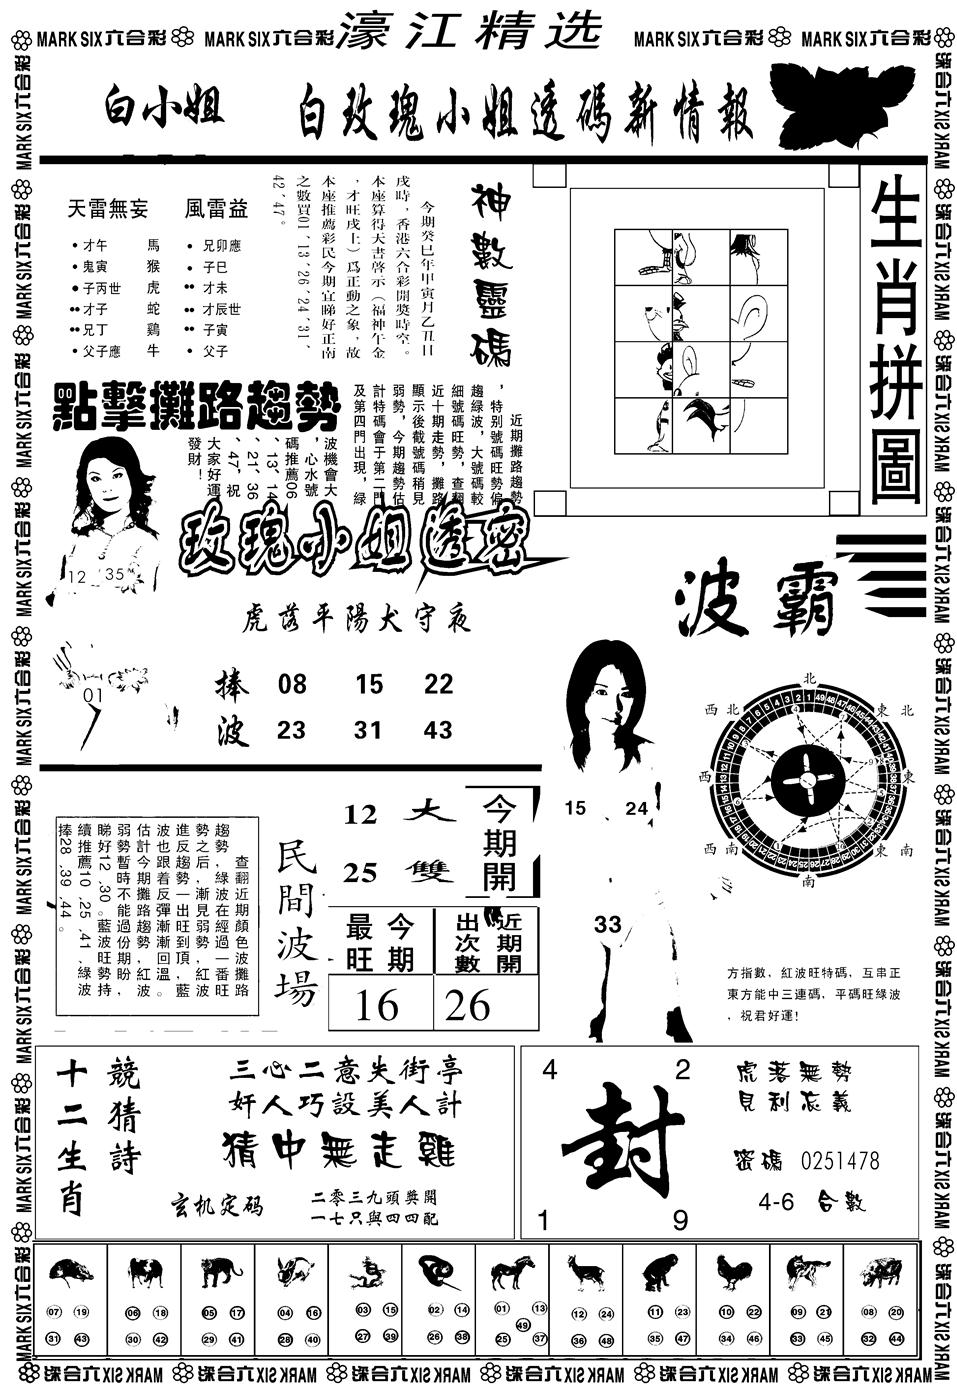 MARK SIX六合彩 MARK SIX六合彩 濠江精选 MARK SIX六合彩 MARK SIX六合彩
白小姐 白玫瑰小姐透碼新情報
天雷無妄 風雷益
才午 馬
鬼寅 猴
子丙世 虎
才子 蛇
兄丁 鷄
父子應 牛
兄卯應
子巳
才未
才辰世
子寅
父子
神數靈碼
今期癸巳年甲寅月乙丑日
戌時，香港六合彩開獎時空。
本座算得天書啓示（福神午金
，才旺戌土）爲正動之象，故
本座推薦彩民今期宜睇好正南
之數買01、13、26、24、31、
42、47。
生肖拼圖
點擊攤路趨勢
近期攤路趨勢
，特别號碼旺勢偏
趨綠波，大號碼較
細號碼旺勢，查翻
近十期走勢，攤路
顯示後截號碼稍見
弱勢，今期趨勢估
計特碼會于第二門
及第四門出現，綠
波機會大
，心水號
碼推薦06
、13、14
、21、36
、47，祝
大家好運
發財！
12 35
01
玫瑰小姐透密
虎落平陽犬守夜
捧 08 15 22
波 23 31 43
波霸
15 24
33
北
東北
東
東南
南
西南
西
西北
方指數，紅波旺特碼，互串正
東方能中三連碼，平碼旺綠波
，祝君好運！
查翻近期顏色波攤路
趨勢，綠波在經過一番旺
勢之后，漸見弱勢，紅波
進反趨勢一出旺到頂，藍
波也跟着反彈漸漸回溫。
估計今期攤路趨勢，紅波
弱勢暫時不能過份期盼，
睇好12、30。藍波旺勢持
續推薦10、25、41，綠波
捧28、39、44。
民間波場
12 大
25 雙
今期開
最旺 今期
出次數 近期開
16 26
十二生肖
競猜詩
三心二意失街亭
奸人巧設美人計
猜中無走雞
玄机定码
二零三九頭獎開
一七只與四四配
4 2
封
1 9
虎落無勢
見利忘義
密碼 0251478
4-6 合數
07 19 31 43
06 18 30 42
05 17 29 41
04 16 28 40
03 15 27 39
02 14 26 38
01 13 49 25 37
12 24 36 48
11 23 35 47
10 22 34 46
09 21 33 45
08 20 32 44
MARK SIX六合彩 MARK SIX六合彩 MARK SIX六合彩 MARK SIX六合彩 MARK SIX六合彩